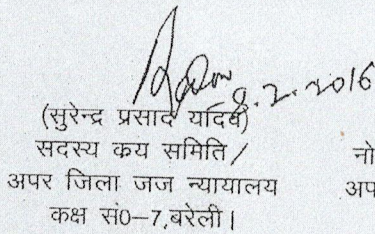 8.2.2016
(सुरेन्द्र प्रसाद यादव)
सदस्य कय समिति / नो
अपर जिला जज न्यायालय अप
कक्ष सं0-7,बरेली।